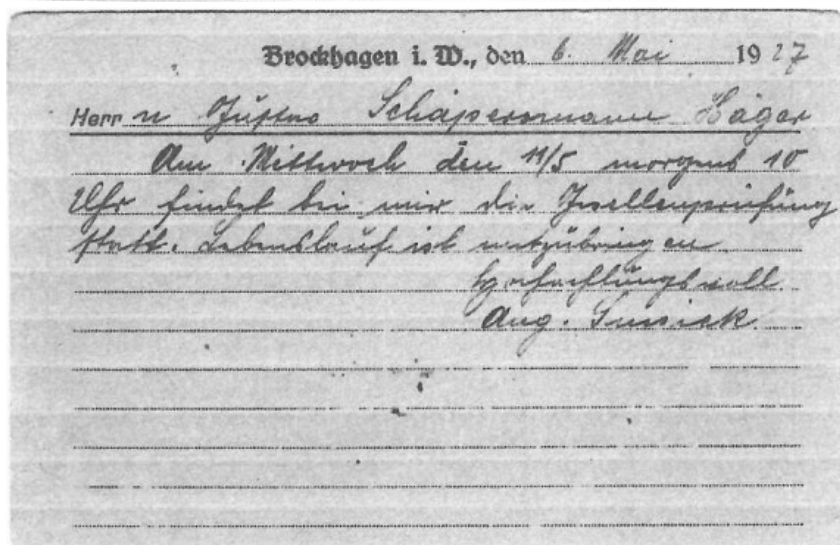 Brockhagen i. W., den 6. Mai 1927
Herrn Gustav Schäpersmann Häger
Am Mittwoch den 11/5 morgens 10
Uhr findet bei mir die Gesellenprüfung
statt. Lebenslauf ist mitzubringen
Hochachtungsvoll
Aug.